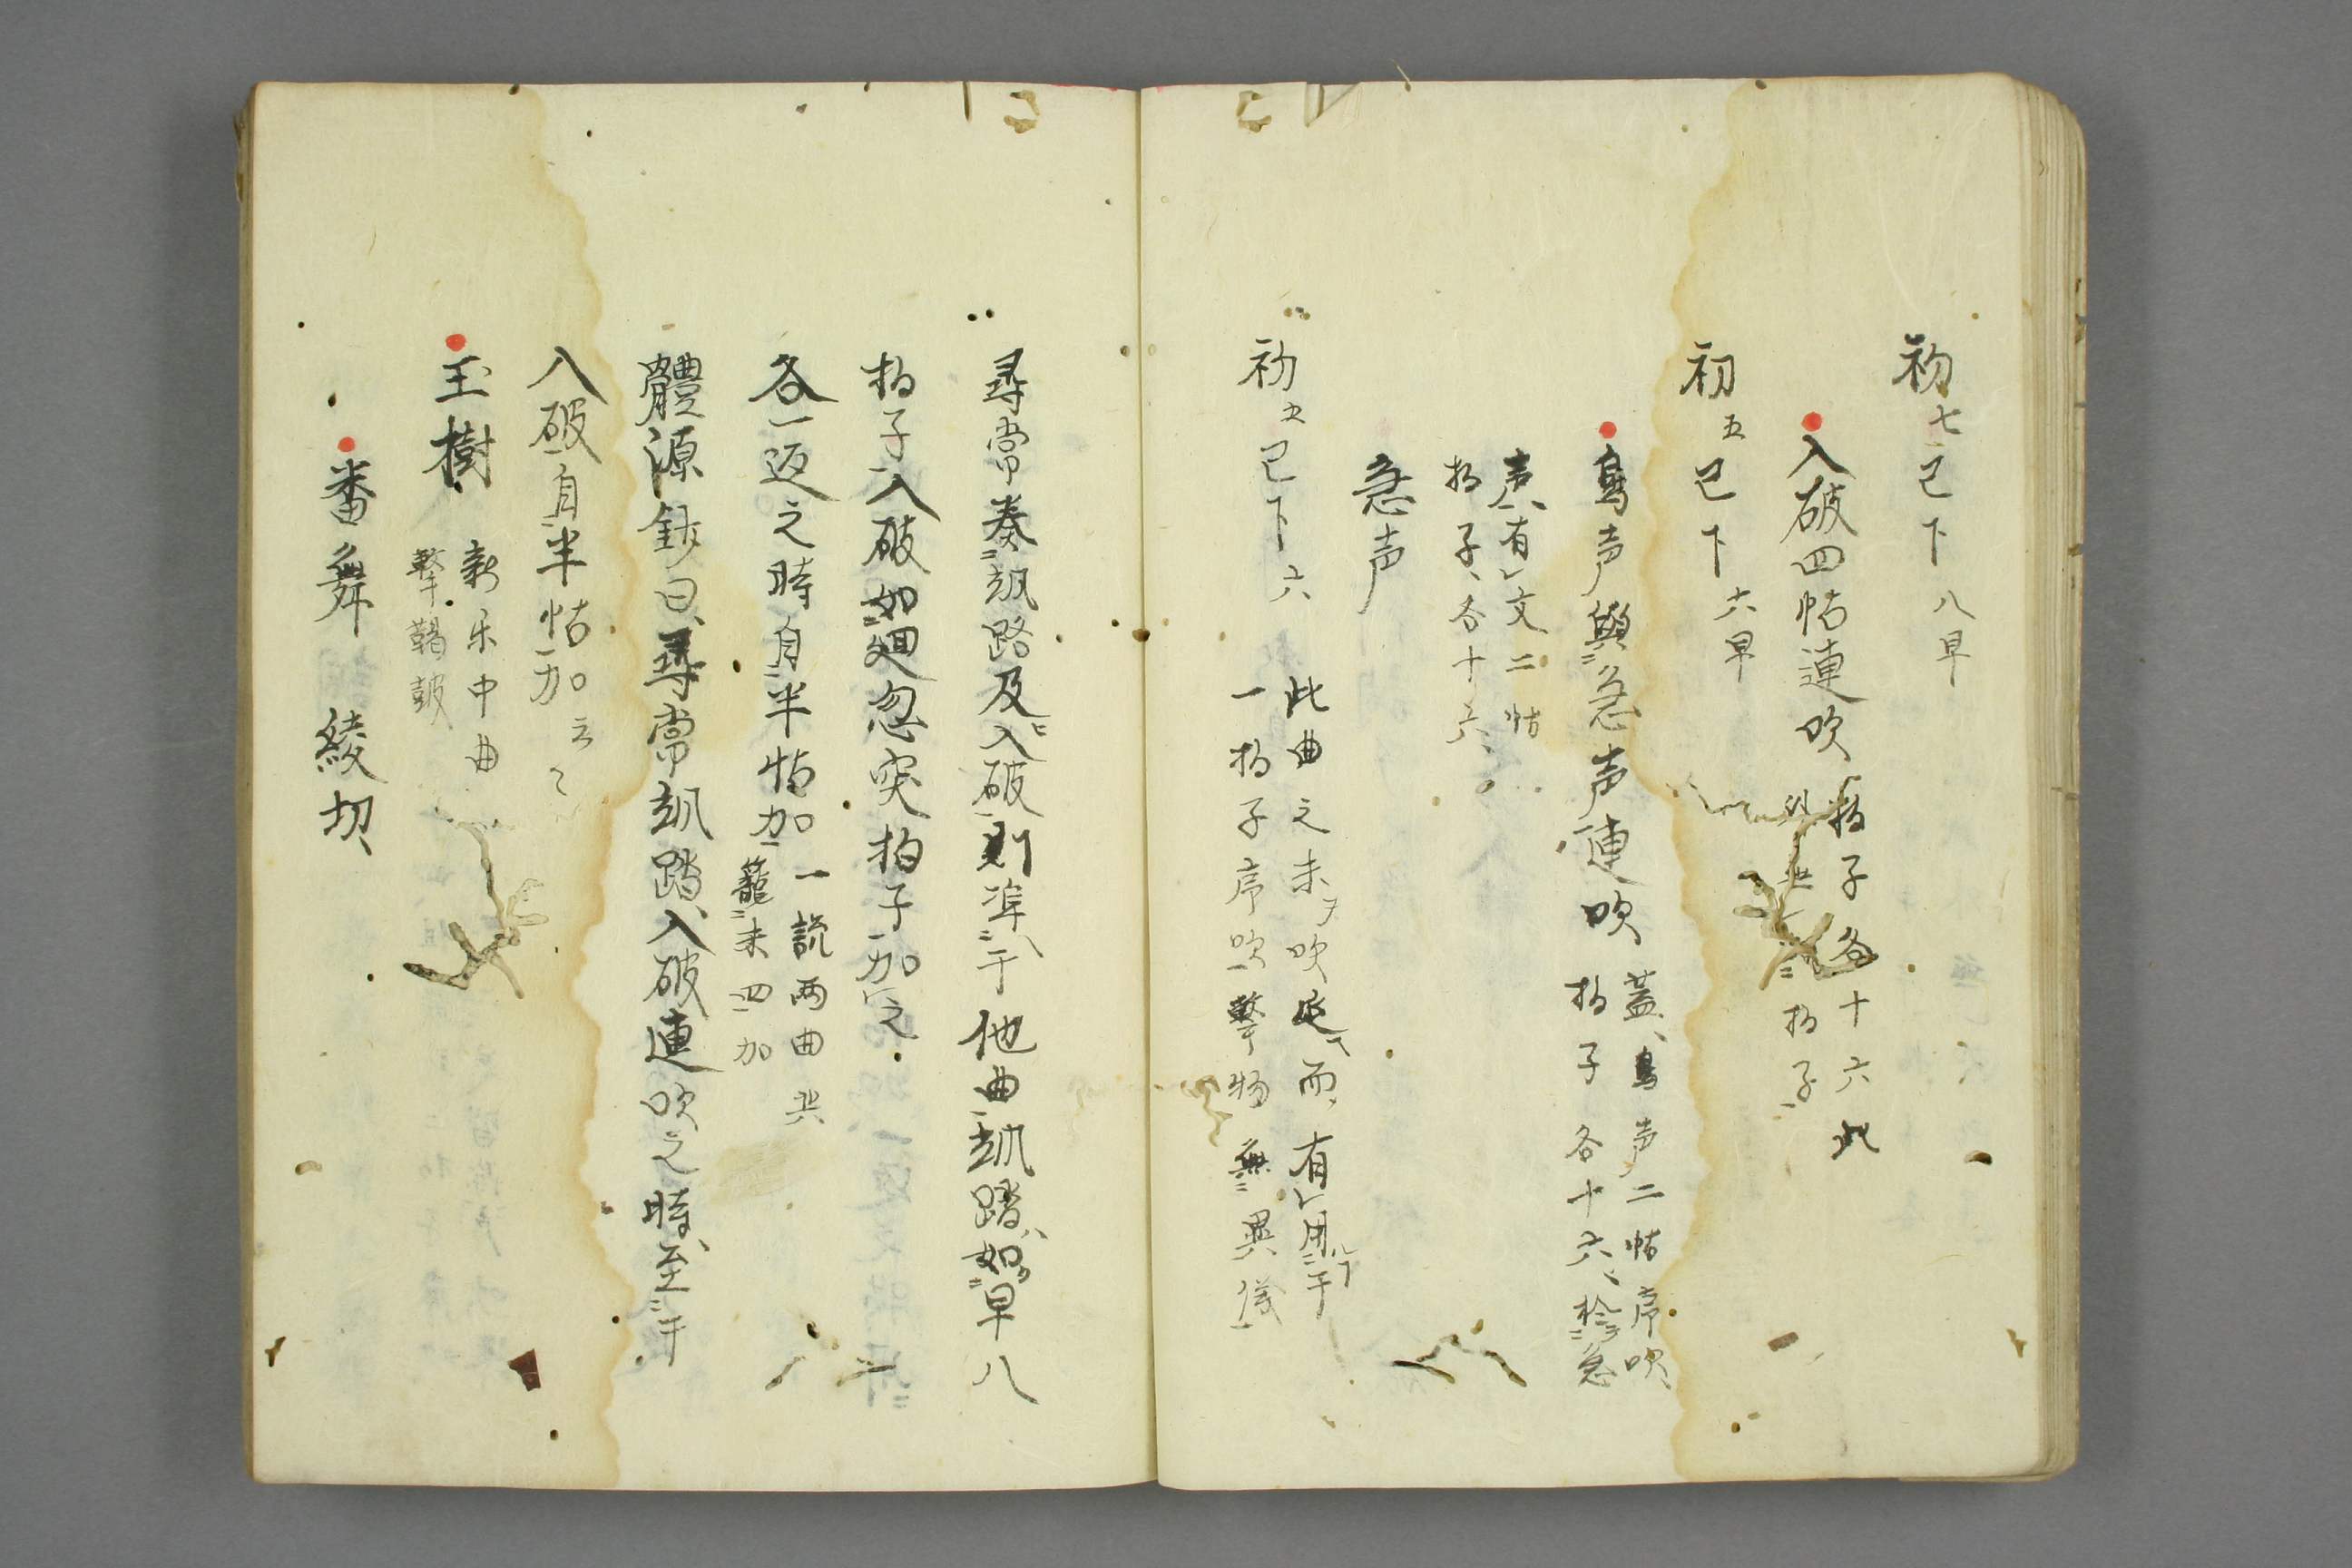 初七已下八早
入破四帖連吹拍子各十六此
外
拍子
初五已下六早
鳥声與急声連吹
蓋鳥声二帖序吹
拍子各十六、於急
声有文二帖
拍子、各十六、
急声
初五已下六
此曲之末ヲ吹延テ而有用于
一拍子序吹擊物無異儀
尋常奏颯踏及入破則准于他曲颯踏如早八
拍子入破如廻忽突拍子加之
各一返之時自半帖加
一説両曲共
籠末四加
體源鈔曰尋常颯踏、入破連吹之時、至于
入破自半帖加云々
玉樹
新乐中曲
擊鞨鼓
番舞 綾切